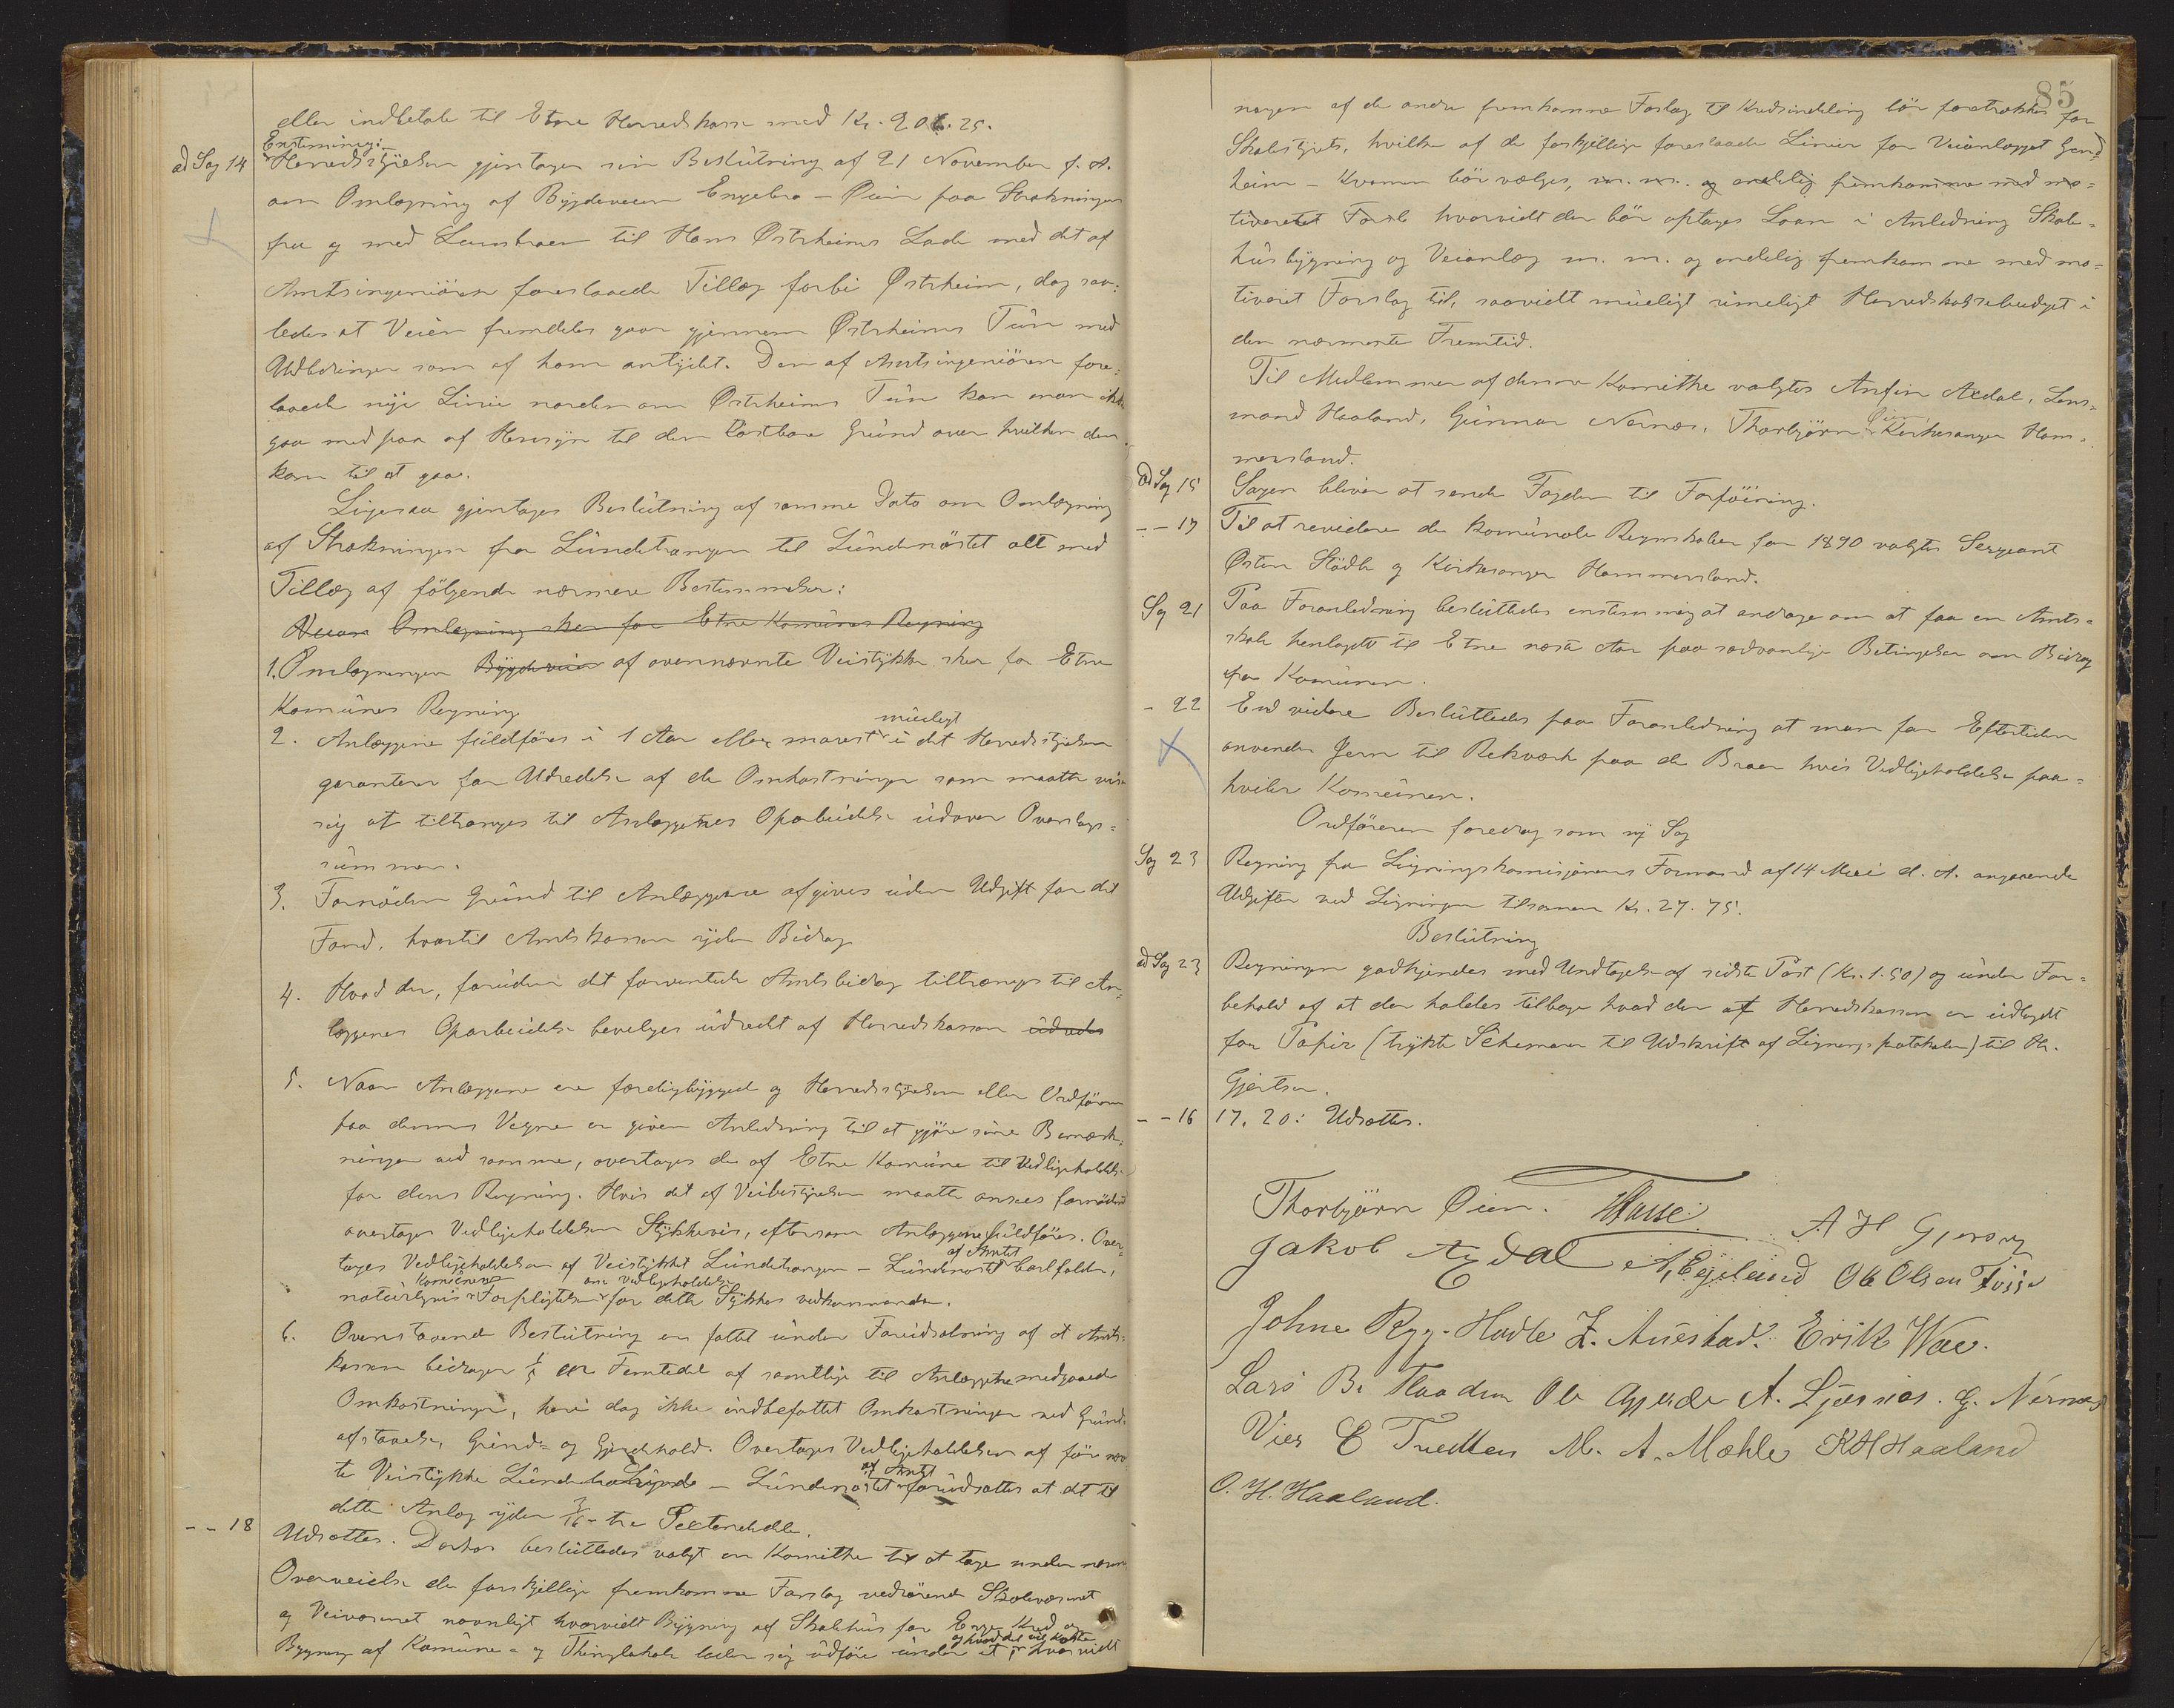 eller indbetale til Etne Herredskasse med Kr. 206.25.
Enstemmig:
ad Sag 14 Herredsstyrelsen gjentager sin Beslutning af 21 November f. A.
om Omlægning af Bygdeveien Engebra - Øien paa Strækningen
fra og med Lamstraen til Hans Østrheims Lade med det af
Amtsingeniören foreslaaede Tillæg forbi Østrheim, dog saa-
ledes at Veien fremdeles gaar gjennem Østrheims Tun med
Udbedringer som af ham antydet. Den af Amtsingeniören fore-
slaaede nye Linie nordenom Østrheims Tun kan man ikke
gaa med paa af Hensyn til den kostbare Grund over hvilken den
kom til at gaa.
Ligesaa gjentages Beslutning af samme Dato om Omlægning
af Strækningen fra Lundetrangen til Lundenöstet alt med
Tillæg af fölgende nærmere Bestemmelser:
Omlægning sker for Etne Komunes Regning
1. Omlægningen Bygdeveien af ovennævnte Veistykke sker for Etne
Komunes Regning
mueligt
2. Anlæggene fuldföres i 1 Aar eller snarest i det Herredsstyrelsen
garanterer for Udredelse af de Omkostninger som maatte vise
sig at tiltrænges til Anlæggenes Oparbeidelse udover Overslags-
summen.
3. Fornöden Grund til Anlæggene afgives uden Udgift for det
Fond, hvortil Amtskassen yder Bidrag
4. Hvad der, foruden det forventede Amtsbidrag tiltrænges til An-
læggenes Oparbeidelse bevilges udredt af Herredskassen udredes
5. Naar Anlæggene ere færdigbygget og Herredsstyrelsen eller Ordföreren
paa dennes Vegne er given Anledning til at gjöre sine Bemærk-
ninger ved samme, overtages de af Etne Komune til Vedligeholdelse
for dens Regning. Hvis det af Veibestyrelsen maatte ansees fornödent
overtages Vedligeholdelsen Stykkevis, eftersom Anlæggene fuldföres. Over-
af Amtet
tages Vedligeholdelsen af Veistykket Lundetrangen - Lundenöstet bortfalder,
Komunens om Vedligeholdelse
naturligvis Forpligtelsen for dette Stykkes vedkommende.
6. Ovenstaaende Beslutning er fattet under Forudsætning af at Amts-
kassen bidrager 1/5 en Femtedel af samtlige til Anlæggene medgaaede
Omkostninger, heri dog ikke indbefattet Omkostninger ved Grund-
afstaaelse, Grind- og Gjerdehold. Overtages Vedligeholdelsen af för nævn-
af Amtet
te Veistykke - Lundenöstet forudsættes at det til
dette Anlæg yder 3/16 - tre Sextendedele.
- - 18 Udsættes. Derhos besluttedes valgt en Komithe til at tage under nærmere
Overveielse de forskjellige fremkomne Forslag vedrörende Skolevæsenet
og Veivæsenet navnligt hvorvidt Bygning af Skolehus for Enge Kred og
og hvad det vil koste
Bygning af Komune- og Thinglokale lader sig udföre under et, hvorvidt
85
nogen af de andre fremkomne Forslag til Kredsindeling bör foretrækkes for
Skolestyrets, hvilken af de forskjellige foreslaaede Linier for Veianlægget Grind-
heim - Kvamen bör vælges, m. m. og endelig fremkomme med mo-
tiveretet Forsl hvorvidt der bör optages Laan i Anledning Skole-
husbygning og Veianlæg m. m. og endelig fremkomme med mo-
tiveret Forslag til, saavidt mueligt rimeligt Herredskassebudget i
den nærmeste Fremtid.
Til Medlemmer af denne Komithe valgtes Anfin Axdal, Lens-
Øien,
mand Haaland, Gunnar Nernæs, Thorbjörn Kirkesanger Ham-
mersland.
ad Sag 15 Sagen bliver at sende Fogden til Forföining.
- - 19 Til at revidere de komunale Regnskaber for 1890 valgtes Sergeant
Østen Stödle og Kirkesanger Hammersland.
Sag 21 Paa Foranledning besluttedes enstemmig at andrage om at faa en Amts-
skole henlagt til Etne næste Aar paa sædvanlige Betingelser om Bidrag
fra Komunen.
- 22 End videre Besluttedes paa Foranledning at man for Eftertiden
anvender Jern til Rekværk paa de Broer hvis Vedligeholdelse paa-
hviler Komunen.
Ordföreren foredrog som ny Sag
Sag 23 Regning fra Ligningskomisjonens Formand af 14 Mai d. A. angaaende
Udgifter ved Ligningen tilsamen Kr. 27.75.
Beslutning
ad Sag 23 Regningen godkjendes med Undtagelse af sidste Post (Kr. 1.50) og under For-
behold af at der holdes tilbage hvad der af Herredskassen er udlagdt
for Papir (trykte Schemaer til Udskrift af Ligningsprotokolen) til Hr.
Gjertsen.
- - 16 17, 20: Udsættes.
Thorbjörn Øien. A H Gjersvig
Jakob Axdal Ole Olsen Tösse
Johne Rygg-Hadle Z. Austad. Erik Wae.
Lars Br Flaaden Ole Gjerde A. Ljosnes. G. Nernæs
Vier E Tvedten M. A. Mæhle KHHaaland
O. H. Haaland.